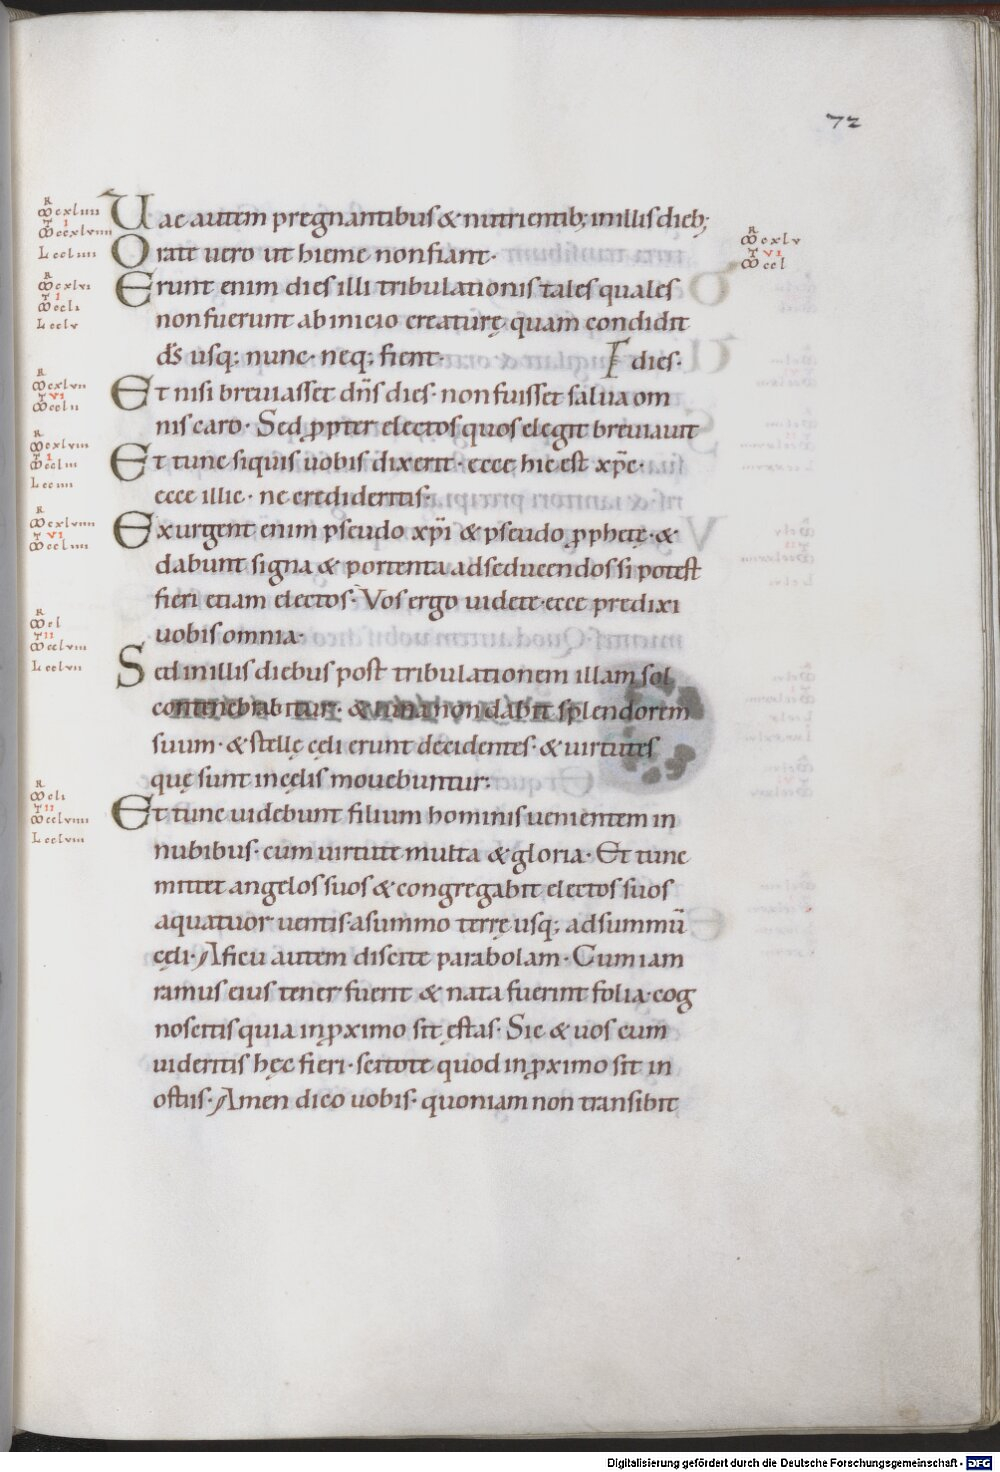 72
Uae autem pregnantibus & nutrientib; inillis dieb;
Orate uero ut hieme non fiant·
Erunt enim dies illi tribulationis tales quales
non fuerunt ab inicio creaturę quam condidit
d̄s usq; nunc· neq; fient· dies·
Et nisi breuiasset dn̄s dies· non fuisset salua om
nis caro· Sed ꝓpter electos quos elegit breuiauit
Et tunc siquis uobis dixerit· ecce hic est xp̄c·
ecce illic· ne credideritis·
Exurgent enim pseudo xp̄i & pseudo ꝓphetę· &
dabunt signa & portenta adseducendos si potest
fieri etiam electos· Vos ergo uidete· ecce predixi
uobis omnia·
Sed inillis diebus post tribulationem illam sol
contenebrabitur· & luna non dabit splendorem
suum· & stellę cęli erunt decidentes· & uirtutes
quę sunt incęlis mouebuntur·
Et tunc uidebunt filium hominis uenientem in
nubibus· cum uirtute multa & gloria· Et tunc
mittet angelos suos & congregabit electos suos
aquatuor uentis· asummo terrę usq; adsummū
cęli· Aficu autem discite parabolam· Cum iam
ramus eius tener fuerit & nata fuerint folia· cog
noscitis quia inꝓximo sit ęstas· Sic & uos cum
uideritis hęc fieri· scitote quod inꝓximo sit in
ostiis· Amen dico uobis· quoniam non transibit
Digitalisierung gefördert durch die Deutsche Forschungsgemeinschaft - DFG